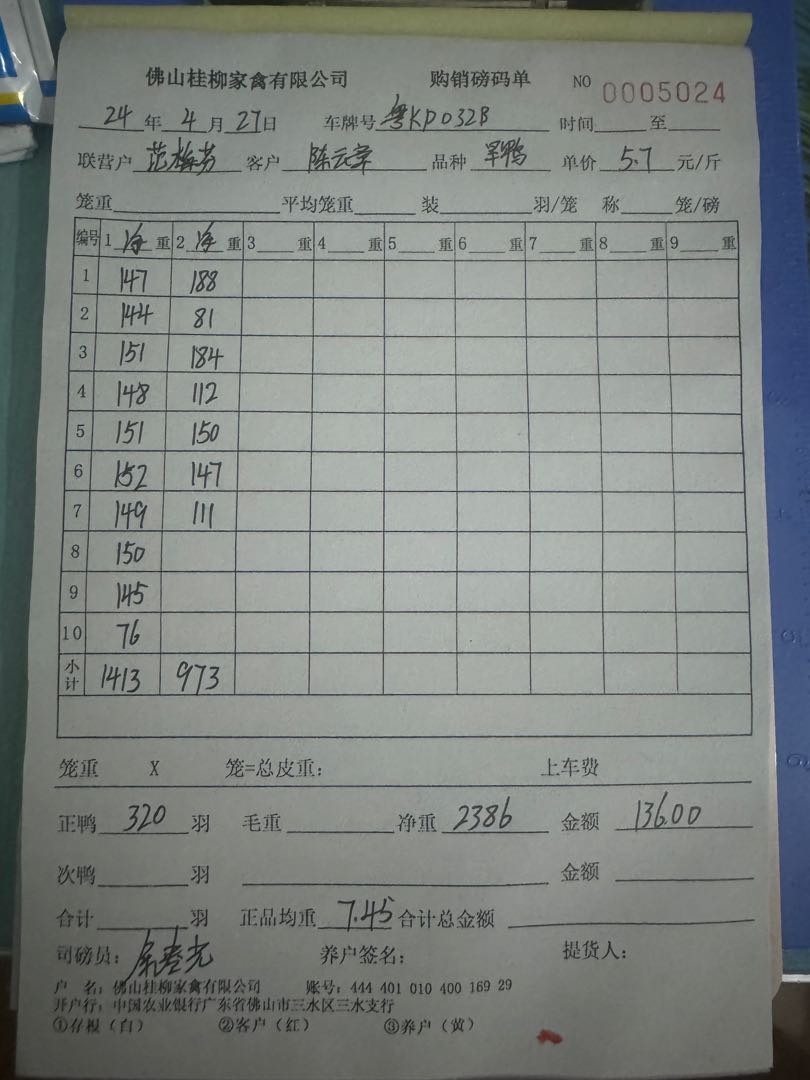 佛山桂柳家禽有限公司 购销磅码单 NO 0005024
24年4月27日 车牌号粤KPD32B 时间 至
联营户 范梅芬 客户 陈云章 品种 罕鸭 单价 5.7 元/斤
笼重 平均笼重 装 羽/笼 称 笼/磅
编号 1 净 重 2 净 重 3 重 4 重 5 重 6 重 7 重 8 重 9 重
1 147 188
2 144 81
3 151 184
4 148 112
5 151 150
6 152 147
7 149 111
8 150
9 145
10 76
小计 1413 973
笼重 X 笼=总皮重: 上车费
正鸭 320 羽 毛重 净重 2386 金额 13600
次鸭 羽 金额
合计 羽 正品均重 7.45 合计总金额
司磅员: 养户签名: 提货人:
户 名: 佛山桂柳家禽有限公司 账号: 444 401 010 400 169 29
开户行: 中国农业银行广东省佛山市三水区三水支行
①存根(白) ②客户(红) ③养户(黄)